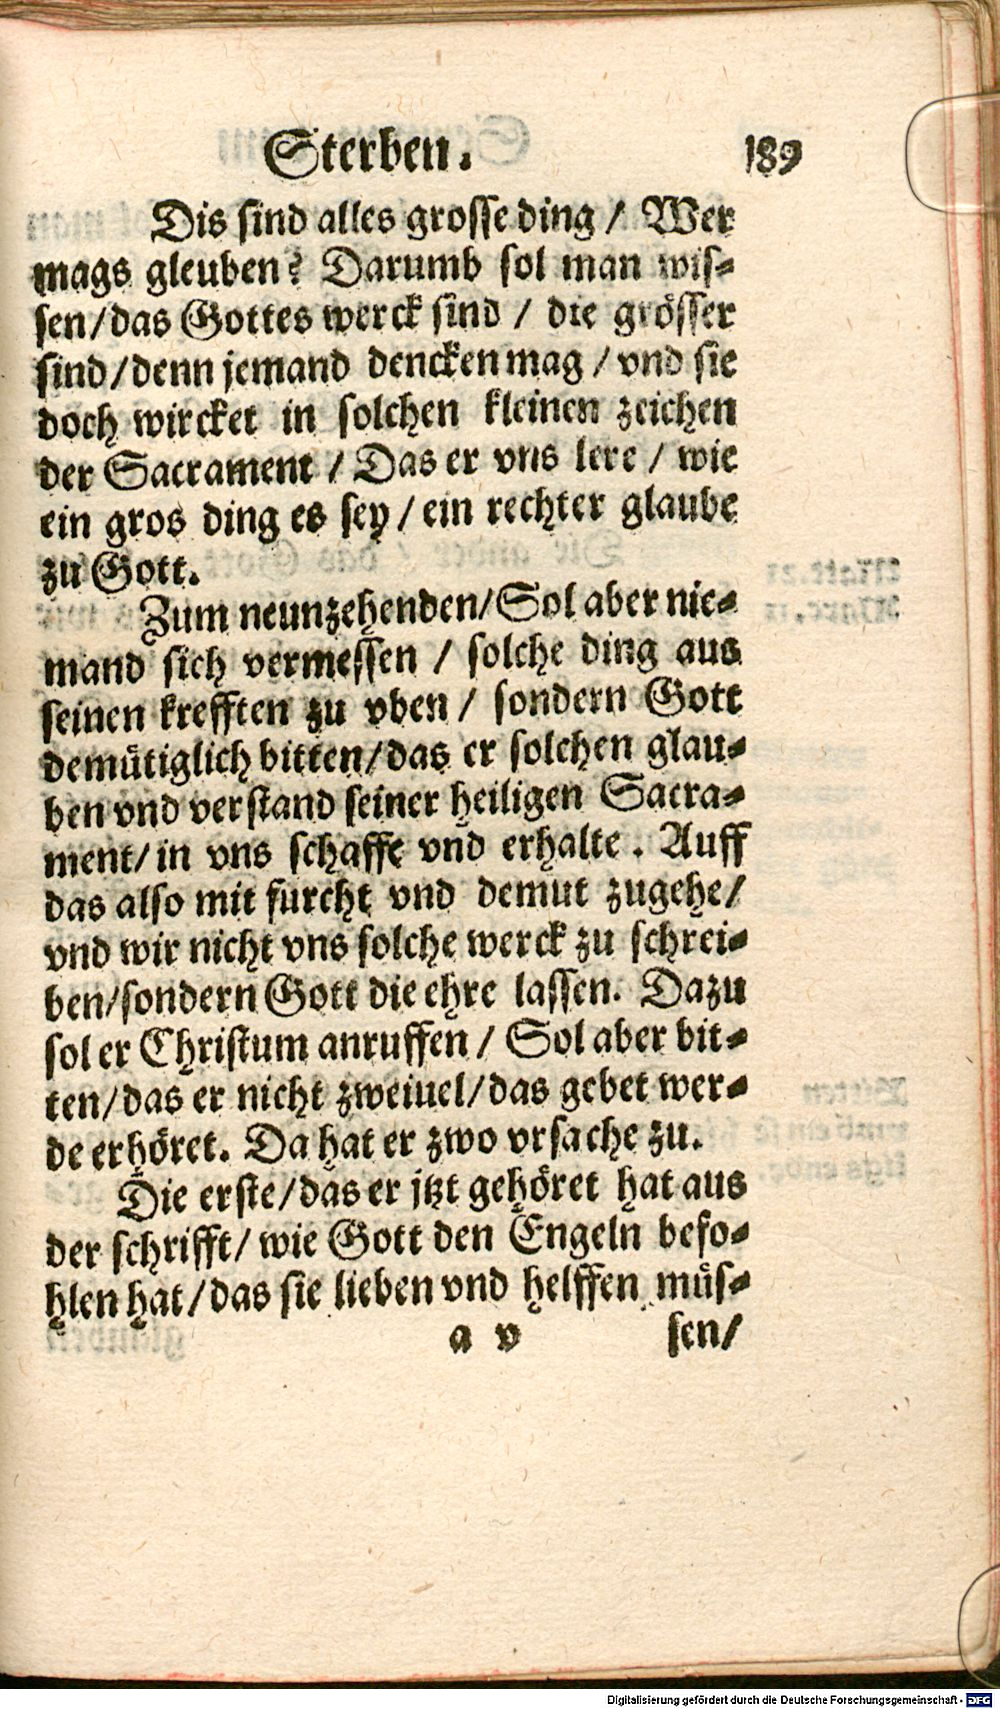 Sterben. 189
Dis sind alles grosse ding / Wer
mags gleuben? Darumb sol man wis-
sen/das Gottes werck sind / die grösser
sind/denn jemand dencken mag / vnd sie
doch wircket in solchen kleinen zeichen
der Sacrament / Das er vns lere / wie
ein gros ding es sey / ein rechter glaube
zu Gott.
Zum neunzehenden/Sol aber nie-
mand sich vermessen / solche ding aus
seinen krefften zu vben / sondern Gott
demütiglich bitten/das er solchen glau-
ben vnd verstand seiner heiligen Sacra-
ment/in vns schaffe vnd erhalte. Auff
das also mit furcht vnd demut zugehe/
vnd wir nicht vns solche werck zu schrei-
ben/sondern Gott die ehre lassen. Dazu
sol er Christum anruffen / Sol aber bit-
ten/das er nicht zweiuel/das gebet wer-
de erhöret. Da hat er zwo vrsache zu.
Die erste/das er jtzt gehöret hat aus
der schrifft/ wie Gott den Engeln befo-
hlen hat/das sie lieben vnd helffen müs-
a v sen/
Digitalisierung gefördert durch die Deutsche Forschungsgemeinschaft - DFG